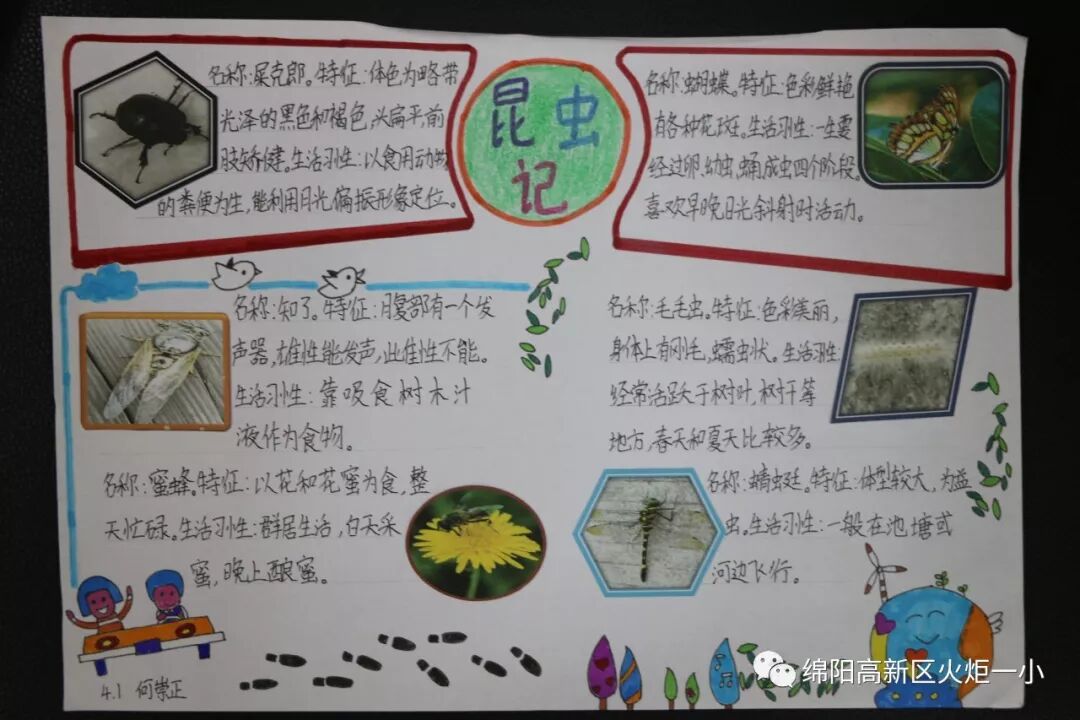 昆虫
记
名称:屎克郎。特征:体色为略带
光泽的黑色和褐色,头扁平,前
肢矫健。生活习性:以食用动物
的粪便为生,能利用月光偏振形象定位。
名称:蝴蝶。特征:色彩鲜艳
有各种花斑。生活习性:一生要
经过卵,幼虫,蛹成虫四个阶段。
喜欢早晚日光斜射时活动。
名称:知了。特征:腹部有一个发
声器,雄性能发声,雌性不能。
生活习性:靠吸食树木汁
液作为食物。
名称:毛毛虫。特征:色彩美丽,
身体上有刚毛,蠕虫状。生活习性:
经常活跃于树叶,树干等
地方,春天和夏天比较多。
名称:蜜蜂。特征:以花和花蜜为食,整
天忙碌。生活习性:群居生活,白天采
蜜,晚上酿蜜。
名称:蜻蜓。特征:体型较大,为益
虫。生活习性:一般在池塘或
河边飞行。
4.1 何崇正
绵阳高新区火炬一小